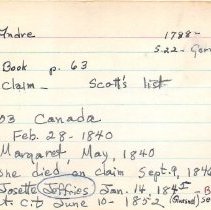 Andre 1788-
5.22-
Book p. 63
Claim - Scott's list
03 Canada
Feb. 28-1840
Margaret, May, 1840
she died on claim Sept. 9, 184
Josette Joffries Jan. 14, 184
t. Ct June 10-1852